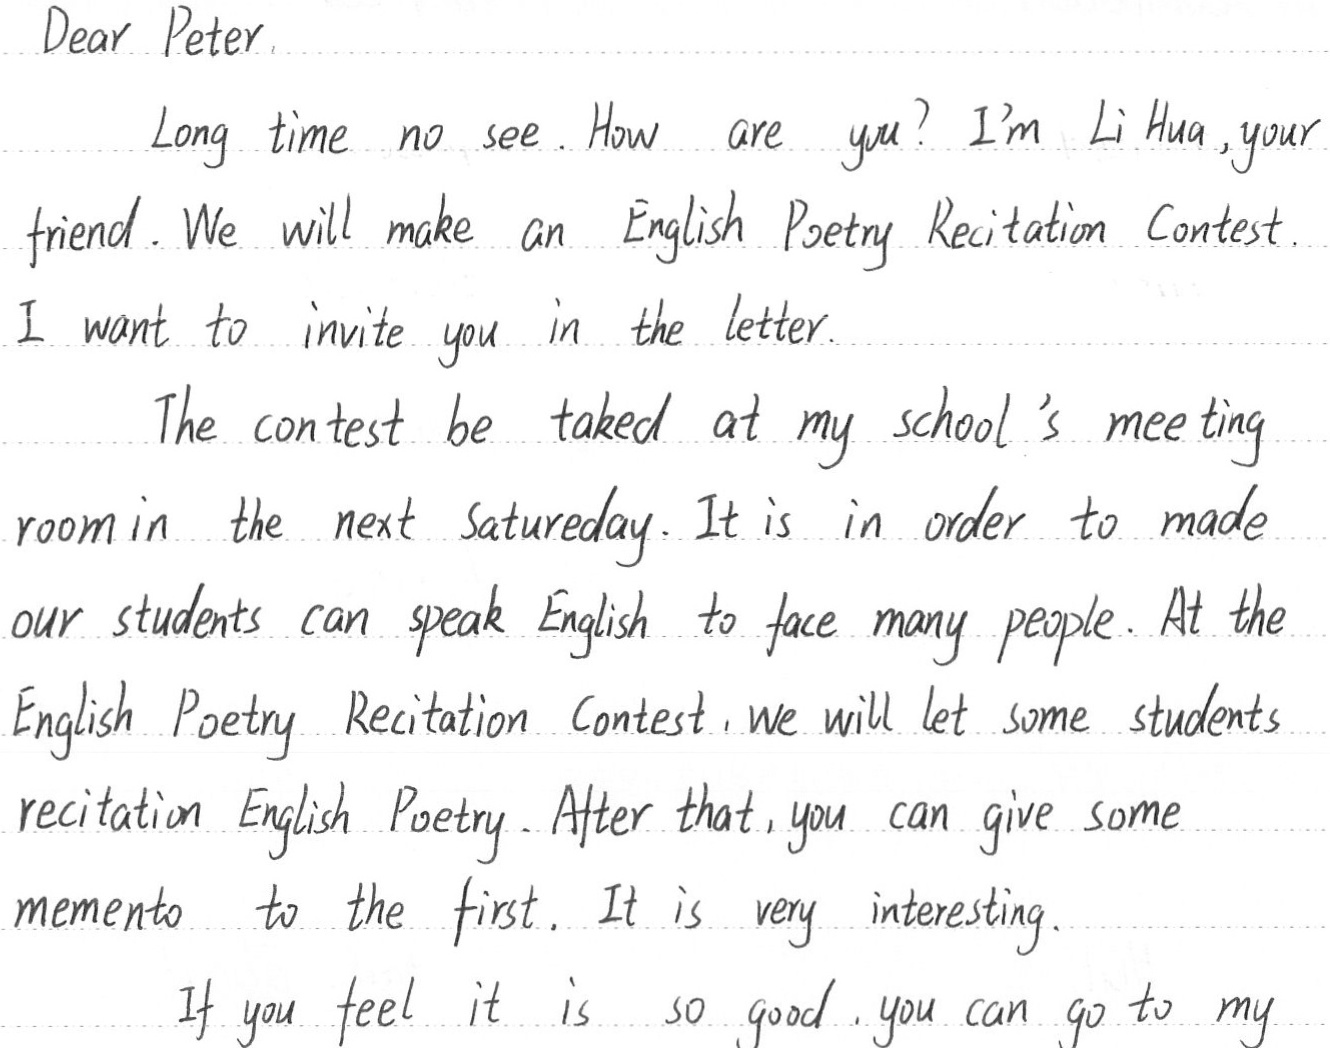 Dear Peter,
Long time no see. How are you? I'm Li Hua, your
friend. We will make an English Poetry Recitation Contest.
I want to invite you in the letter.
The contest be taked at my school's meeting
room in the next Satureday. It is in order to made
our students can speak English to face many people. At the
English Poetry Recitation Contest, we will let some students
recitation English Poetry. After that, you can give some
memento to the first. It is very interesting.
If you feel it is so good, you can go to my